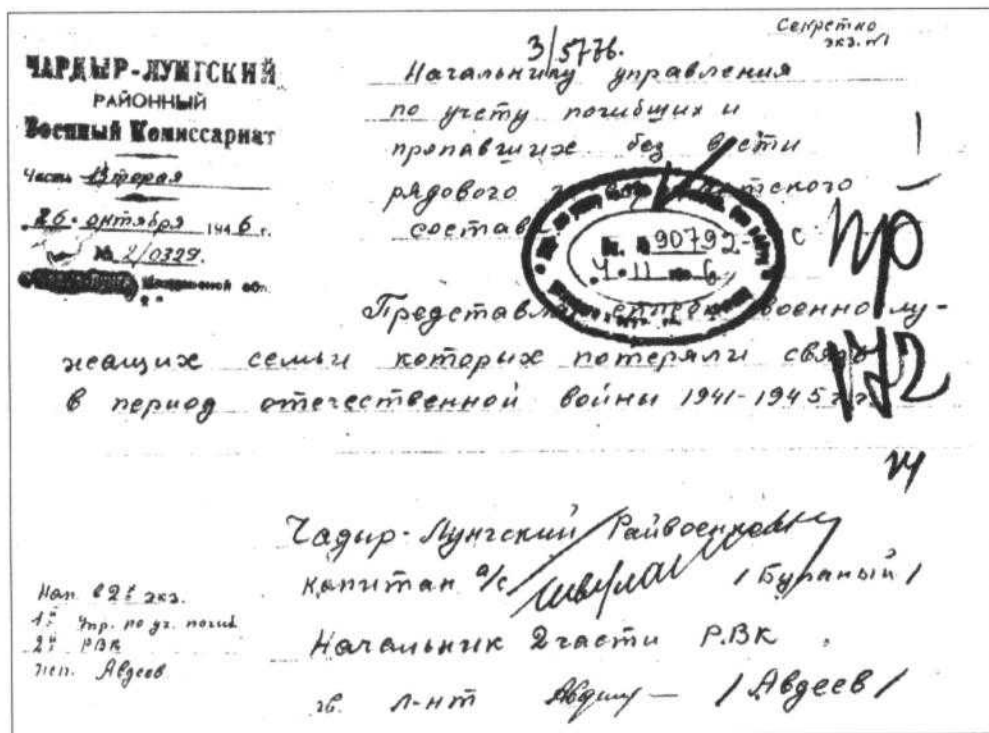 Секретно
экз. №1
3/5776.
ЧАРДЫР-ЛУНГСКИЙ
РАЙОННЫЙ
Военный Комиссариат
Часть Вторая
26 октября 1946 г.
№ 2/0329.
обл.
Начальнику управления
по учету погибших и
пропавших без вести
рядового
состав
№ 90792 с
4.11 6
Представля военнослу-
жащих семьи которых потеряли связь
в период отечественной войны 1941-1945 г.г.
пр
172
Чадыр-Лунгский Райвоенком
капитан а/с /Бураный/
Начальник 2 части Р.ВК
гв. л-нт /Авдеев/
Нап. в 2х экз.
1й Упр. по уч. погиб
2й РВК
исп. Авдеев